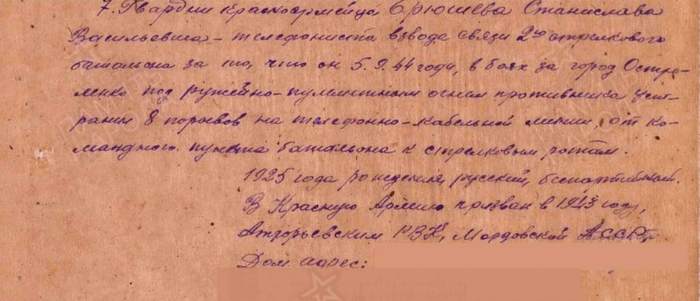 7. Гвардии красноармейца Ерюшева Станислава
Васильевича - телефониста взвода связи 2го стрелкового
батальона за то, что он 5.9.44 года, в боях за город Остро-
ленко под ружейно-пулеметным огнем противника устра-
нил 8 порывов на телефонно-кабельной линии, от ко-
мандного пункта батальона к стрелковым ротам.
1925 года рождения, русский, беспартийный.
В Красную Армию призван в 1943 году,
Атюрьевским РВК, Мордовской АССР.
Дом адрес: